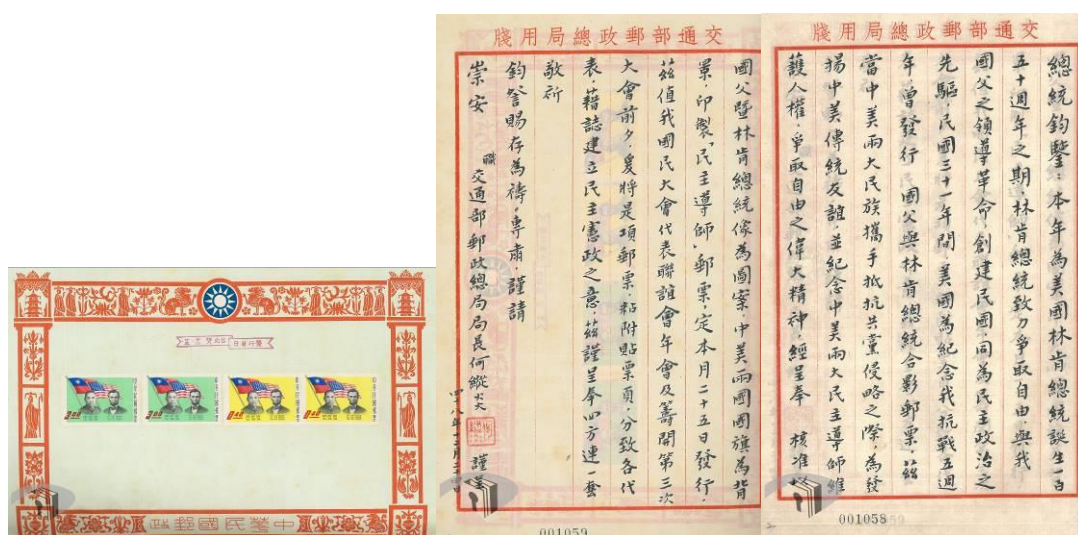 交通部郵政總局用牋
總統鈞鑒：本年為美國林肯總統誕生一百
五十週年之期，林肯總統致力爭取自由，與我
國父之領導革命，創建民國，同為民主政治之
先驅，民國三十一年間，美國為紀念我抗戰五週
年，曾發行　國父與林肯總統合影郵票，茲
當中美兩大民族攜手抵抗共黨侵略之際，為發
揚中美傳統友誼，並紀念中美兩大民主導師維
護人權，爭取自由之偉大精神，經呈奉　核准以
001058
交通部郵政總局用牋
國父暨林肯總統像為圖案，中美兩國國旗為背
景，印製「民主導師」郵票，定本月二十五日發行，
茲值我國民大會代表聯誼會年會及籌開第三次
大會前夕，爰將是項郵票，粘附貼票頁，分致各代
表，藉誌建立民主憲政之意，茲謹呈奉四方連一套
敬祈
鈞詧賜存為禱，專肅，謹請
崇安
職　交通部郵政總局局長何縱炎　謹呈
四八年十二月二十四日
001059
3.00
3.00
0.40
0.40
中華民國郵政